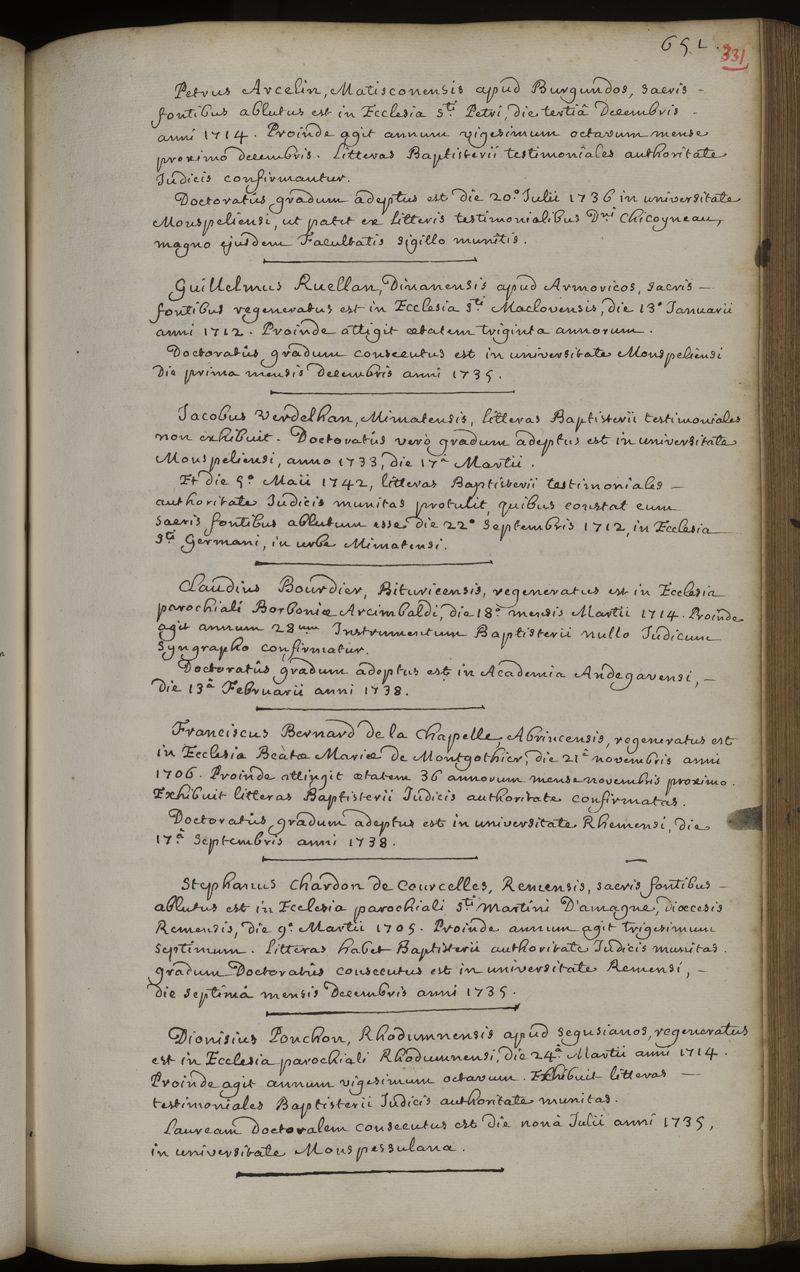 651.
331
Petrus Arcelin, Matisconensis apud Burgundos, sacris -
fontibus ablutus est in Ecclesia sti Petri, die tertiâ Decembris -
anni 1714. Proinde agit annum vigesimum octavum mense
proximo decembris. Litteras Baptisterii testimoniales authoritate
Judicis confirmantur.
Doctoratûs gradum adeptus est die 20.a Julii 1736 in universitate
Monspeliensi, ut patet ex litteris testimonialibus Dni Chicoyneau,
magno ejusdem Facultatis sigillo munitis.
Guillelmus Ruellan, Dinanensis apud Armoricos, sacris -
fontibus regeneratus est in Ecclesia sti Maclovensis, die 13a Januarii
anni 1712. Proinde attigit ætatem triginta annorum.
Doctoratûs gradum consecutus est in universitate Monspeliensi
die prima mensis decembris anni 1735.
Jacobus Verdelhan, Mimatensis, litteras Baptisterii testimoniales
non exhibuit. Doctoratûs verò gradum adeptus est in universitate
Monspeliensi, anno 1733, die 17a Martii.
Et die 5.a Maii 1742, litteras Baptisterii testimoniales -
authoritate Judicis munitas protulit, quibus constat eum
sacris fontibus ablutum esse die 22a septembris 1712, in Ecclesia
Sti Germani, in urbe Mimatensi.
Claudius Bourdier, Bituricensis, regeneratus est in Ecclesia
parochiali Borboniæ Arcimbaldi, die 18a mensis Martii 1714. Proinde
agit annum 28um Instrumentum Baptisterii nullo Judicum
Syngrapho confirmatur.
Doctoratûs gradum adeptus est in Academia Andegavensi, -
die 13a Februarii anni 1738.
Franciscus Bernard de la Chapelle, Abrincensis, regeneratus est
in Ecclesia Beatæ Mariæ de Montgothier, die 21a novembris anni
1706. Proinde attingit ætatem 36 annorum mense novembris proximo.
Exhibuit litteras Baptisterii Judicis authoritate confirmatas.
Doctoratûs gradum adeptus est in universitate Rhemensi, die
17a Septembris anni 1738.
Stephanus Chardon de Courcelles, Remensis, sacris fontibus -
ablutus est in Ecclesia parochiali sti Martini D'amagne, diœcesis
Remensis, die 9a Martii 1705. Proinde annum agit trigesimum
septimum. Litteras habet Baptisterii authoritate Judicis munitas.
gradum Doctoratûs consecutus est in universitate Remensi, -
die septimâ mensis Decembris anni 1735.
Dionisius Ponchon, Rhodumnensis apud segusianos, regeneratus
est in Ecclesia parochiali Rhodumnensi, die 24a Martii anni 1714.
Proinde agit annum vigesimum octavum. Exhibuit litteras -
testimoniales Baptisterii Judicis authoritate munitas.
Lauream doctoralem consecutus est die nonâ Julii anni 1735,
in universitate Monspessulana.